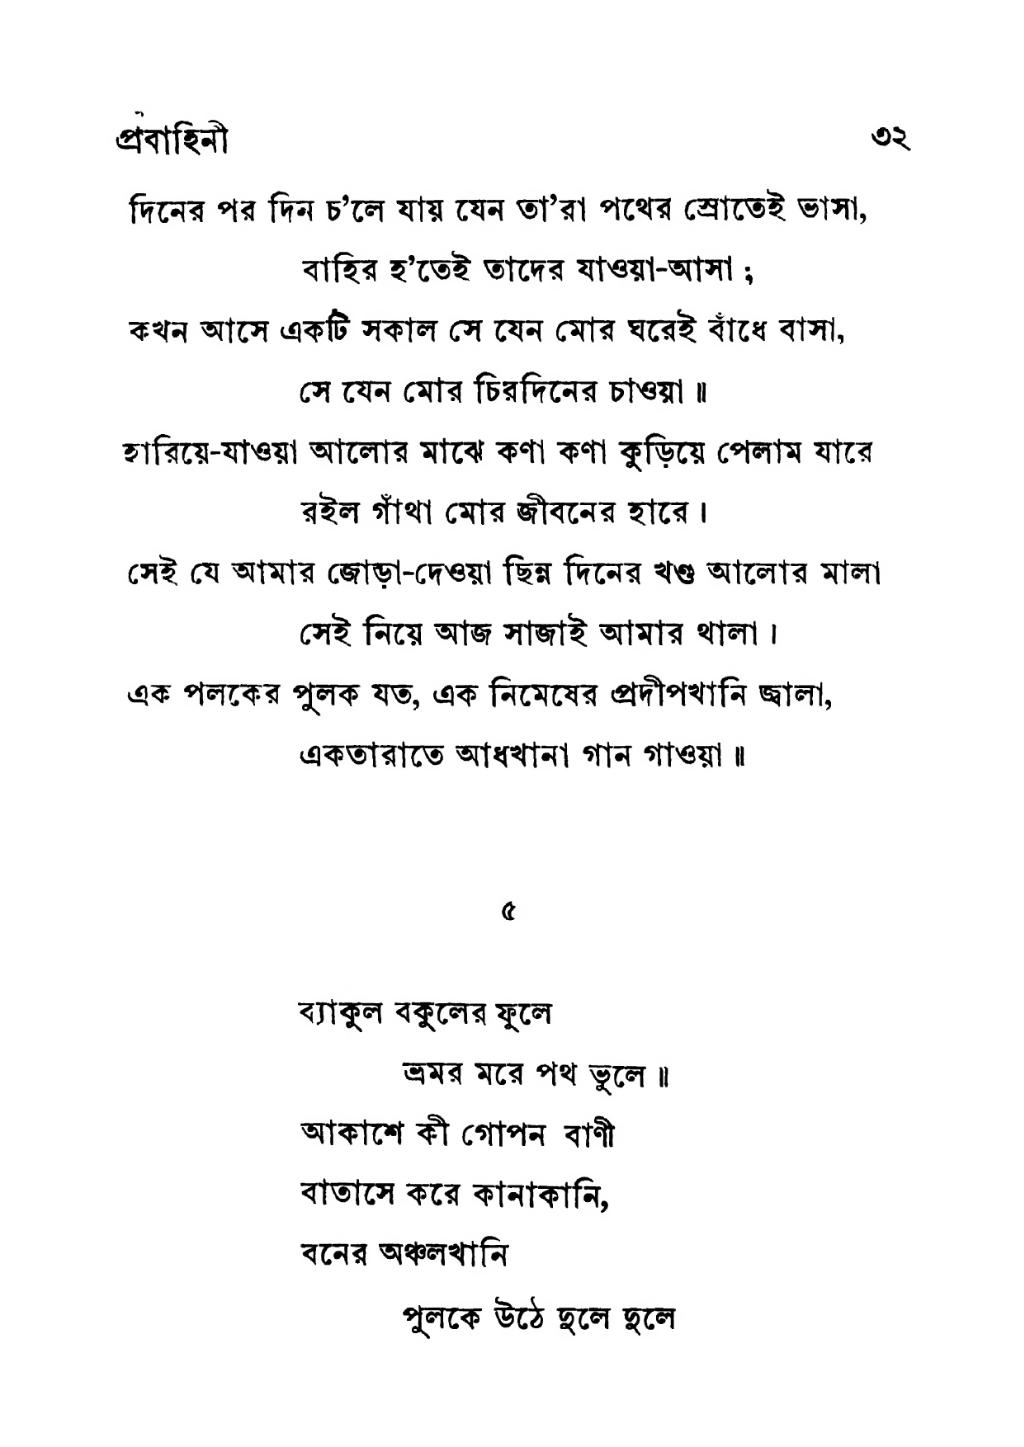 প্রবাহিনী ৩২
দিনের পর দিন চ'লে যায় যেন তা'রা পথের স্রোতেই ভাসা,
বাহির হ'তেই তাদের যাওয়া-আসা ;
কখন আসে একটি সকাল সে যেন মোর ঘরেই বাঁধে বাসা,
সে যেন মোর চিরদিনের চাওয়া ॥
হারিয়ে-যাওয়া আলোর মাঝে কণা কণা কুড়িয়ে পেলাম যারে
রইল গাঁথা মোর জীবনের হারে ।
সেই যে আমার জোড়া-দেওয়া ছিন্ন দিনের খণ্ড আলোর মালা
সেই নিয়ে আজ সাজাই আমার থালা ।
এক পলকের পুলক যত, এক নিমেষের প্রদীপখানি জ্বালা,
একতারাতে আধখানা গান গাওয়া ॥
৫
ব্যাকুল বকুলের ফুলে
ভ্রমর মরে পথ ভুলে ॥
আকাশে কী গোপন বাণী
বাতাসে করে কানাকানি,
বনের অঞ্চলখানি
পুলকে উঠে দুলে দুলে